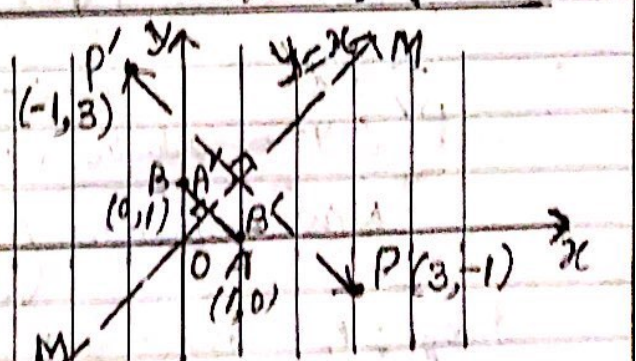 P' y y=x M
(-1, 3)
B A'
(0,1) B'
O A x
(1,0) P (3,-1)
M